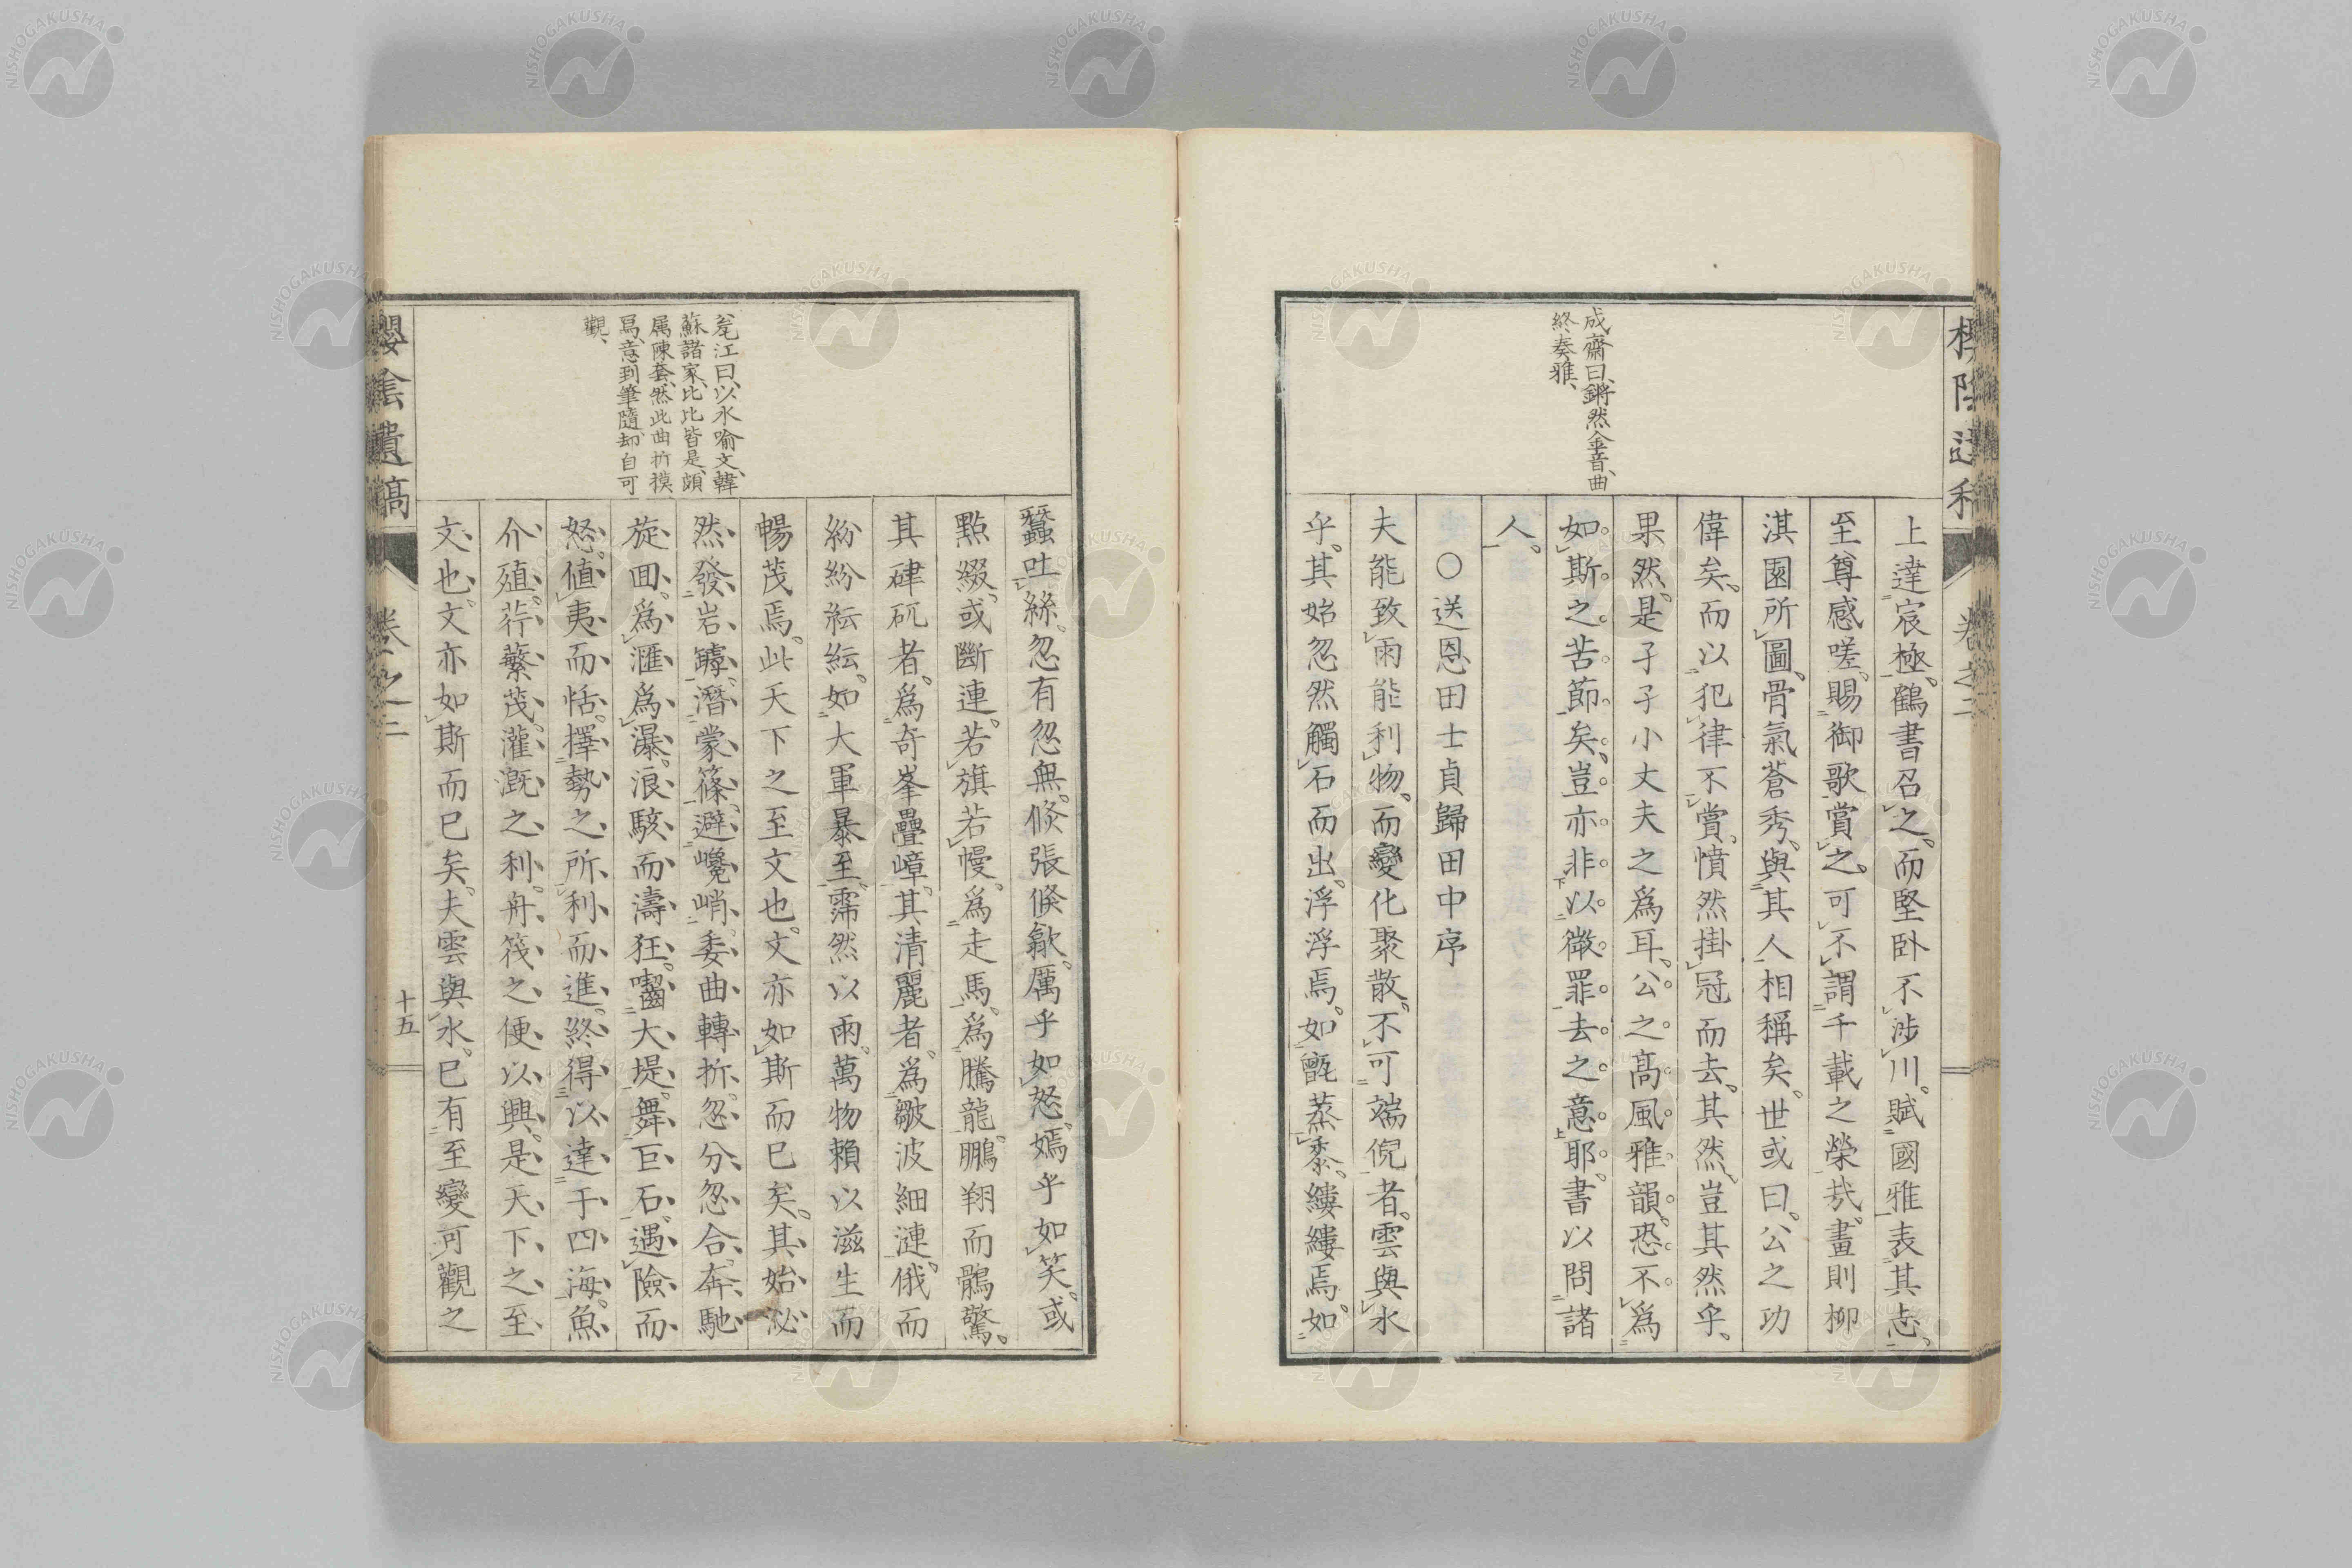 成齋曰、鏘然金音、曲
終奏雅、
上達宸極、鶴書召之、而堅臥不涉川。賦國雅表其志。
至尊感嗟、賜御歌賞之。可不謂千載之榮哉。畫則柳
淇園所圖、骨氣蒼秀、與其人相稱矣。世或曰。公之功
偉矣、而以犯律不賞、憤然掛冠而去。其然、豈其然乎、
果然、是孑孑小丈夫之爲耳。公之高風雅韻、恐不爲
如斯之苦節矣、豈亦非以微罪去之意耶。書以問諸
人。
○送恩田士貞歸田中序
夫能致雨能利物、而變化聚散、不可端倪者。雲與水
乎。其始忽然觸石而出、浮浮焉。如甑蒸黍。縷縷焉。如
櫻陰遺稿 卷之二
瓮江曰、以水喻文、韓
蘇諸家、比比皆是、頗
属陳套、然此曲折摸
寫、意到筆隨、却自可
觀、
蠶吐絲。忽有忽無。倏張倏歙。厲乎如怒。嫣乎如笑。或
點綴、或斷連。若旗若幔。爲走馬。爲騰龍。鵬翔而鶻驚。
其硉矹者。爲奇峯疊嶂。其清麗者。爲皺波細漣。俄而
紛紛紜紜。如大軍暴至。霈然以雨。萬物賴以滋生而
暢茂焉。此天下之至文也。文亦如斯而已矣。其始泌
然發岩罅。潛蒙篠。避巉峭。委曲轉折。忽分忽合。奔馳
旋回。爲滙爲瀑。浪駭而濤狂。齧大堤。舞巨石。遇險而
怒。値夷而恬。擇勢之所利而進。終得以達于四海。魚
介殖。荇蘩茂。灌漑之利。舟筏之便以興。是天下之至
文也。文亦如斯而已矣。夫雲與水。已有至變可觀之
櫻陰遺稿 卷之二 十五